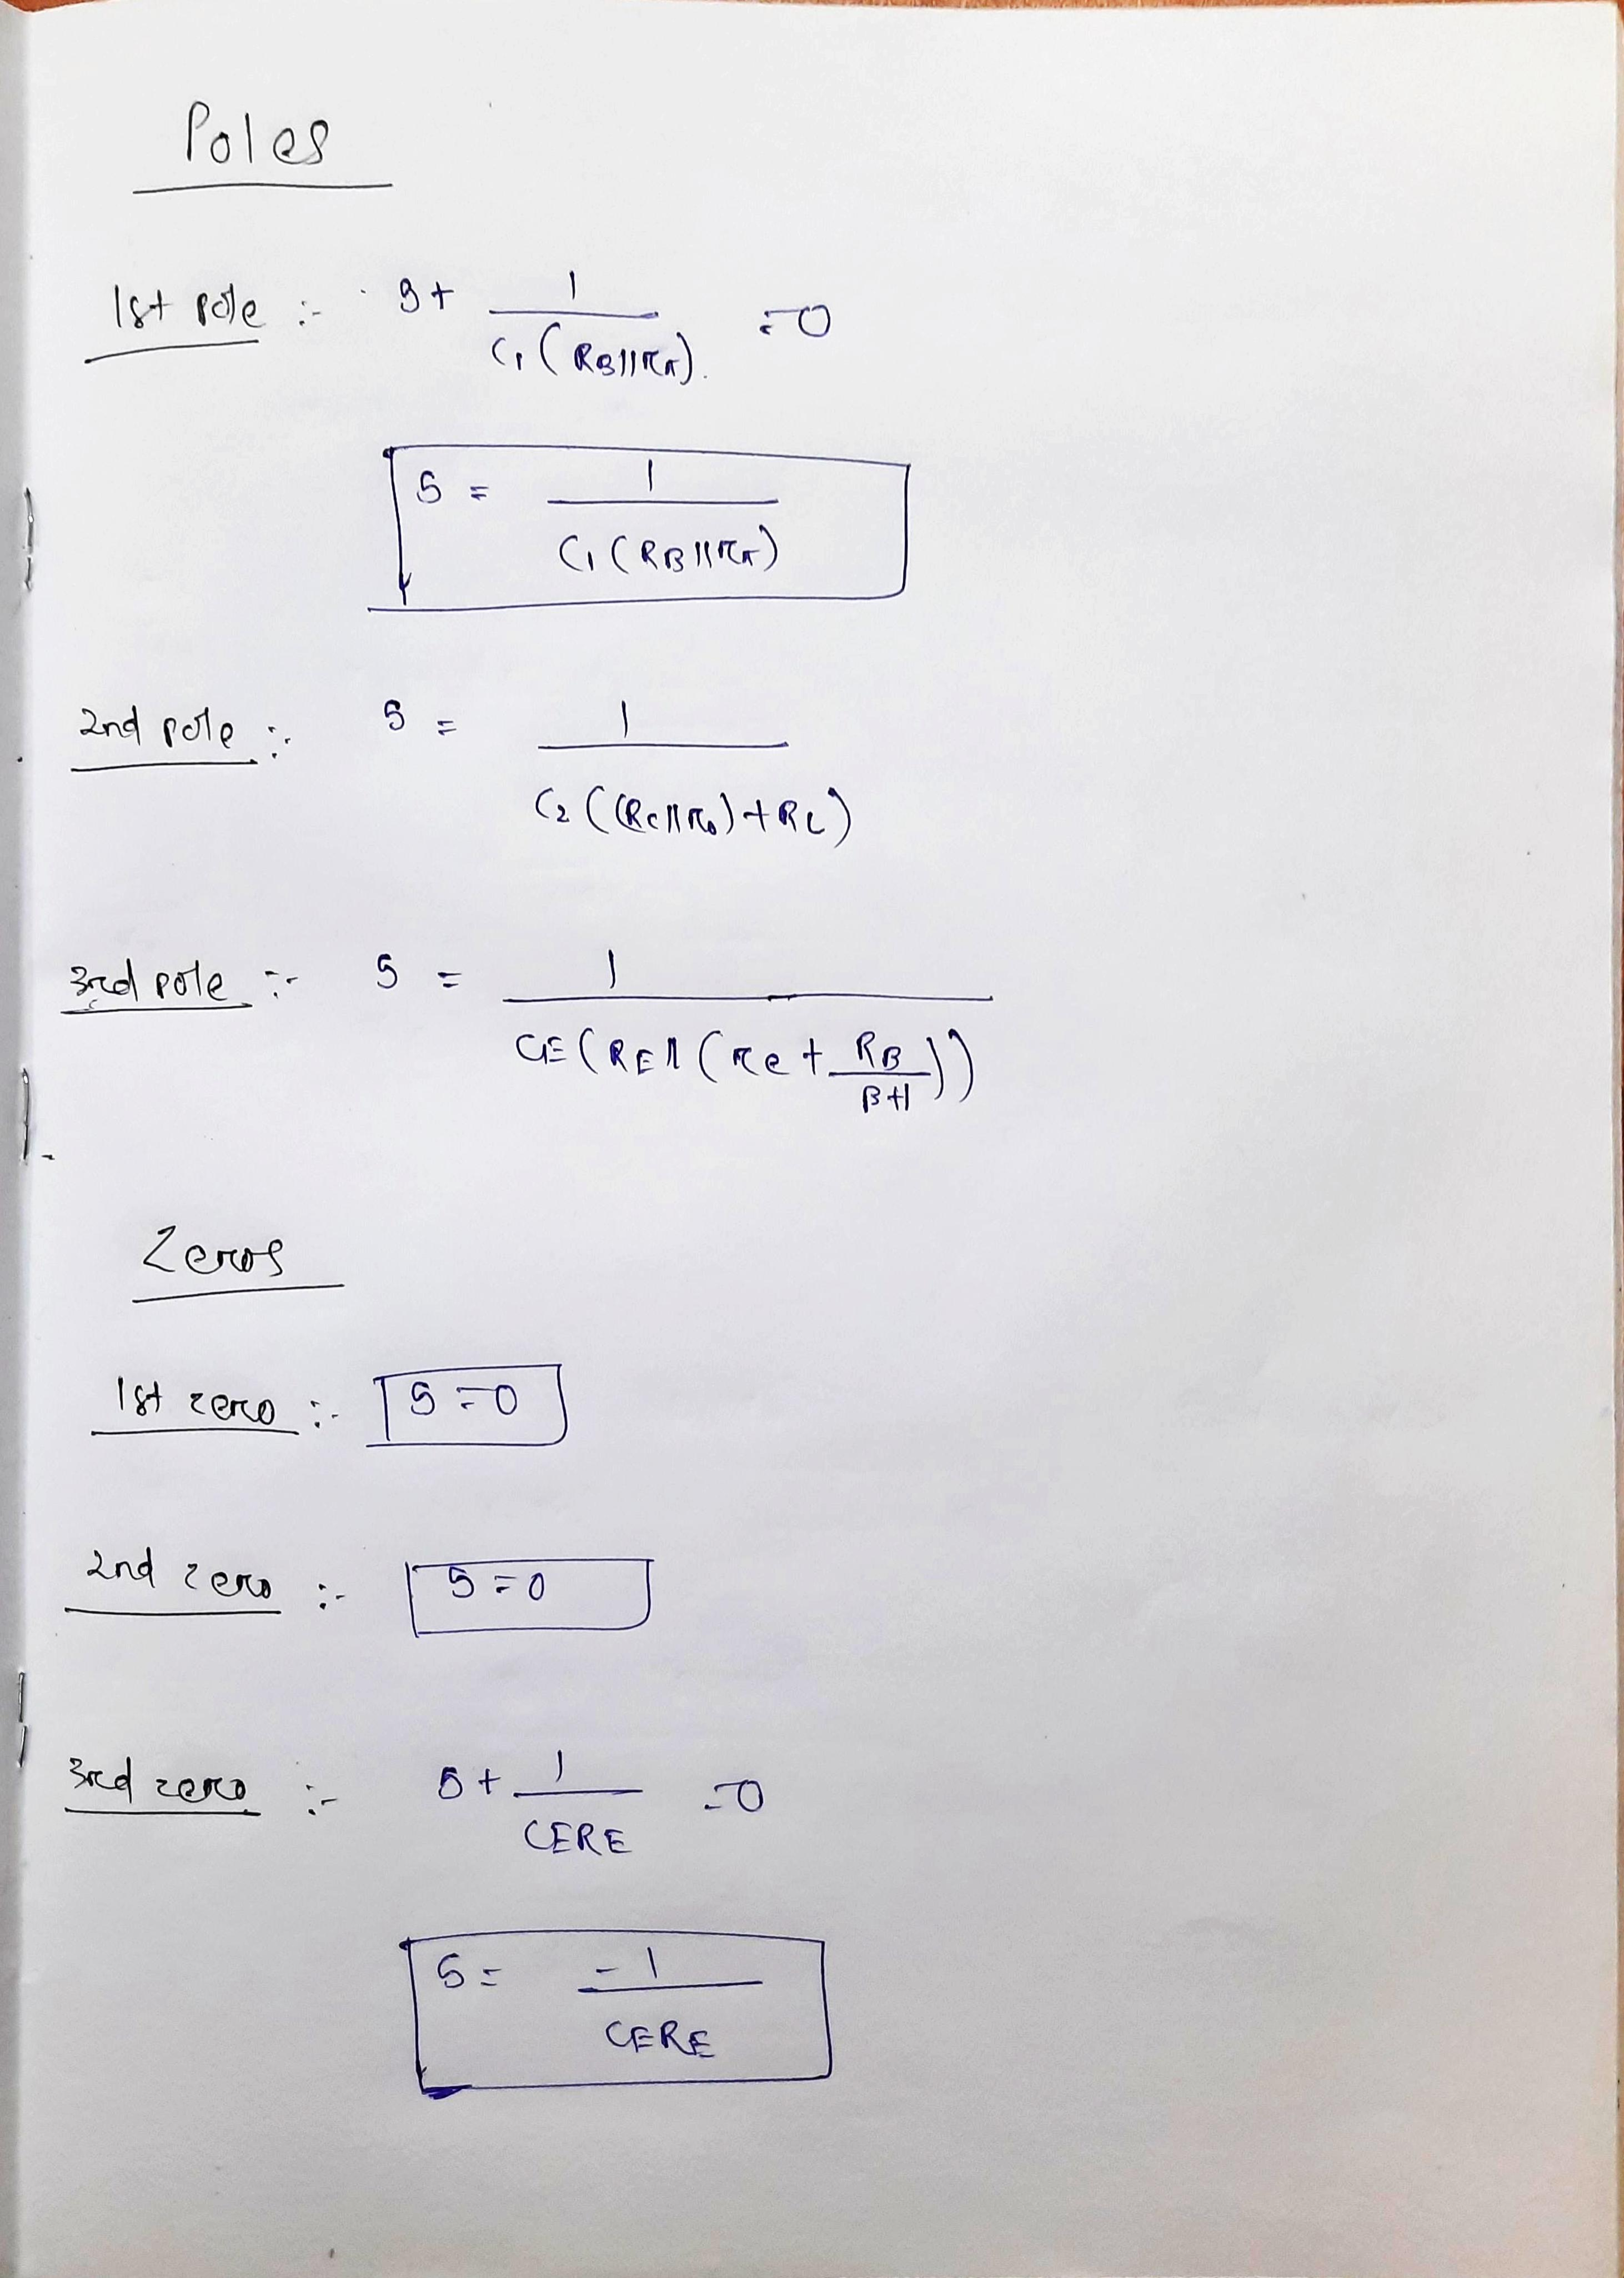 Poles
1st pole :- S + 1 / C1 (RB || rπ) = 0
S = 1 / C1 (RB || rπ)
2nd pole :- S = 1 / C2 ((RC || ro) + RL)
3rd pole :- S = 1 / CE (RE || (re + RB / β+1))
Zeros
1st zero :- S = 0
2nd zero :- S = 0
3rd zero :- S + 1 / CERE = 0
S = -1 / CERE